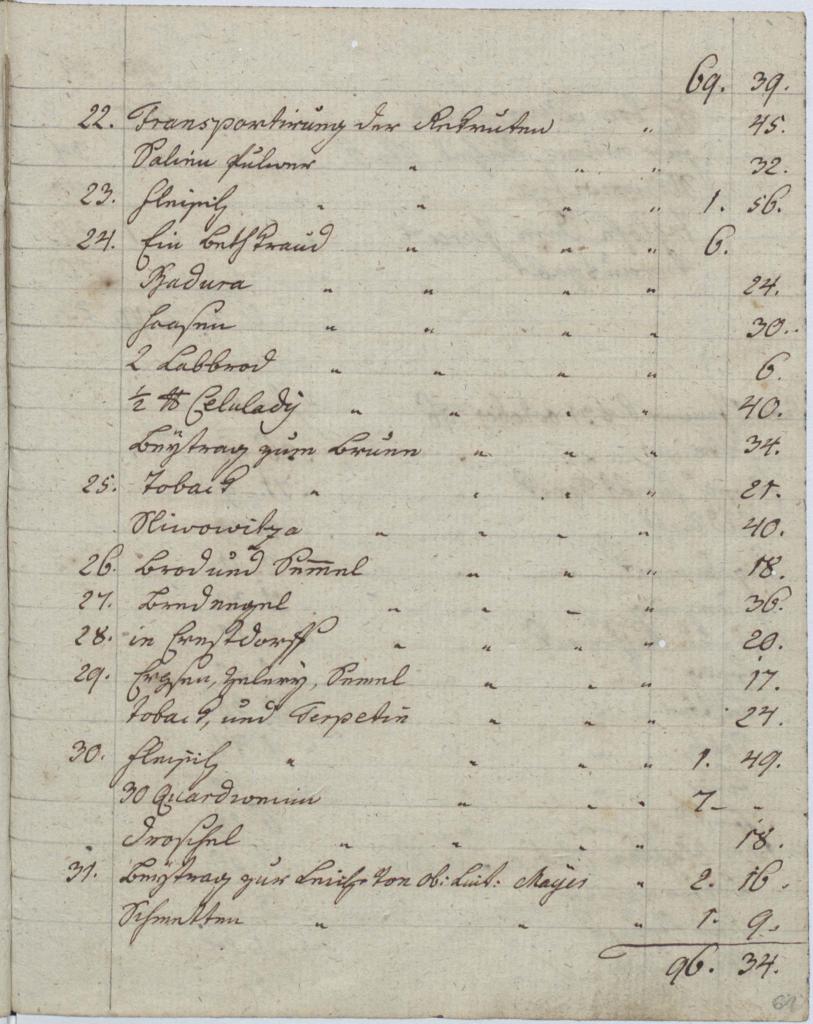 69. 39.
22. Transportirung der Rekruten " 45.
Salien Pulver " " " 32.
23. Fleisch " " " " 1. 56.
24. Ein Beth " " " 6.
Badura " " " " 24.
Haasen " " " " 30.
2 Labbrod " " " " 6.
½ ℔ " " " " 40.
Beÿtrag zum Brunn " " " 34.
25. Toback " " " " 21.
Sliwowitza " " " " 40.
26. Brod und Sem̅el " " " 18.
27. " " " " 36.
28. in Ernstdorff " " " " 20.
29. Erbsen, Zelery, Semel " " " 17.
Toback, und Terpetin " " " 24.
30. Fleisch " " " " 1. 49.
30 Quardwein " " " 7 – "
Droschel " " " " 18.
31. Beÿtrag zur Leiche von Ob: Lieut: " 2. 16.
Schmetten " " " 1. 9.
96. 34.
61